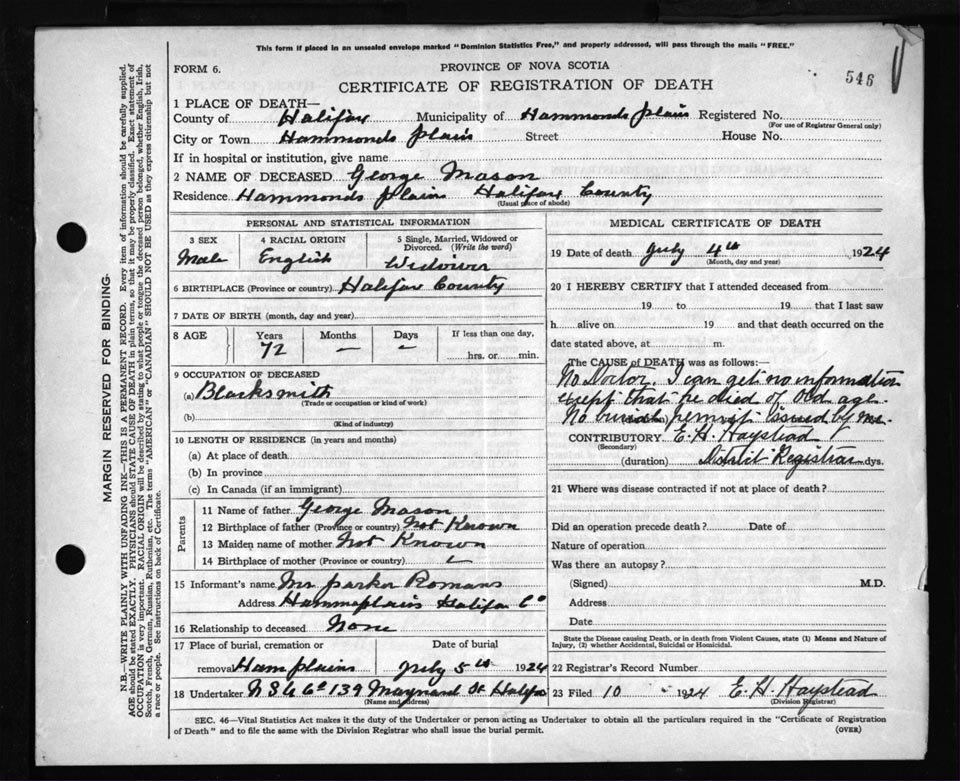 This form if placed in an unsealed envelope marked "Dominion Statistics Free," and properly addressed, will pass through the mails "FREE."
FORM 6.
PROVINCE OF NOVA SCOTIA
546
CERTIFICATE OF REGISTRATION OF DEATH
1 PLACE OF DEATH—
County of Halifax Municipality of Hammonds Plains Registered No.
(For use of Registrar General only)
City or Town Hammonds Plains Street House No.
If in hospital or institution, give name
2 NAME OF DECEASED George Mason
Residence Hammonds Plains Halifax County
(Usual place of abode)
PERSONAL AND STATISTICAL INFORMATION
3 SEX 4 RACIAL ORIGIN 5 Single, Married, Widowed or
Divorced. (Write the word)
Male English Widower
6 BIRTHPLACE (Province or country) Halifax County
7 DATE OF BIRTH (month, day and year)
8 AGE Years Months Days If less than one day,
72 — — hrs. or min.
9 OCCUPATION OF DECEASED
(a) Blacksmith
(Trade or occupation or kind of work)
(b)
(Kind of industry)
10 LENGTH OF RESIDENCE (in years and months)
(a) At place of death
(b) In province
(c) In Canada (if an immigrant)
Parents
11 Name of father George Mason
12 Birthplace of father (Province or country) Not Known
13 Maiden name of mother Not Known
14 Birthplace of mother (Province or country)
15 Informant's name Mr Parker Romans
Address Hammsplains Halifax Co
16 Relationship to deceased None
17 Place of burial, cremation or Date of burial
removal Ham plains July 5th 1924
18 Undertaker N S U Co 139 Maynard St Halifx
(Name and address)
MEDICAL CERTIFICATE OF DEATH
19 Date of death July 4th 1924
(Month, day and year)
20 I HEREBY CERTIFY that I attended deceased from
19 to 19 that I last saw
h alive on 19 and that death occurred on the
date stated above, at m.
The CAUSE of DEATH was as follows:
No Doctor. I can get no information
except that he died of old age.
No burial permit issued by me.
CONTRIBUTORY E. H. Haystead
(Secondary)
(duration) District Registrar dys.
21 Where was disease contracted if not at place of death?
Did an operation precede death? Date of
Nature of operation
Was there an autopsy?
(Signed) M.D.
Address
Date
State the Disease causing Death, or in death from Violent Causes, state (1) Means and Nature of
Injury, (2) whether Accidental, Suicidal or Homicidal.
22 Registrar's Record Number
23 Filed 10 1924 E. H. Haystead
(Division Registrar)
SEC. 46—Vital Statistics Act makes it the duty of the Undertaker or person acting as Undertaker to obtain all the particulars required in the "Certificate of Registration
of Death" and to file the same with the Division Registrar who shall issue the burial permit.
(OVER)
MARGIN RESERVED FOR BINDING.
N.B.—WRITE PLAINLY WITH UNFADING INK—THIS IS A PERMANENT RECORD. Every item of information should be carefully supplied.
AGE should be stated EXACTLY. PHYSICIANS should STATE CAUSE OF DEATH in plain terms, so that it may be properly classified. Exact statement of
OCCUPATION is very important. RACIAL ORIGIN will be described by stating to what people or tongue the deceased person belonged, whether English, Irish,
Scotch, French, German, Russian, Ruthenian, etc. The terms "AMERICAN" or "CANADIAN" SHOULD NOT BE USED as they express citizenship but not
a race or people. See instructions on back of Certificate.